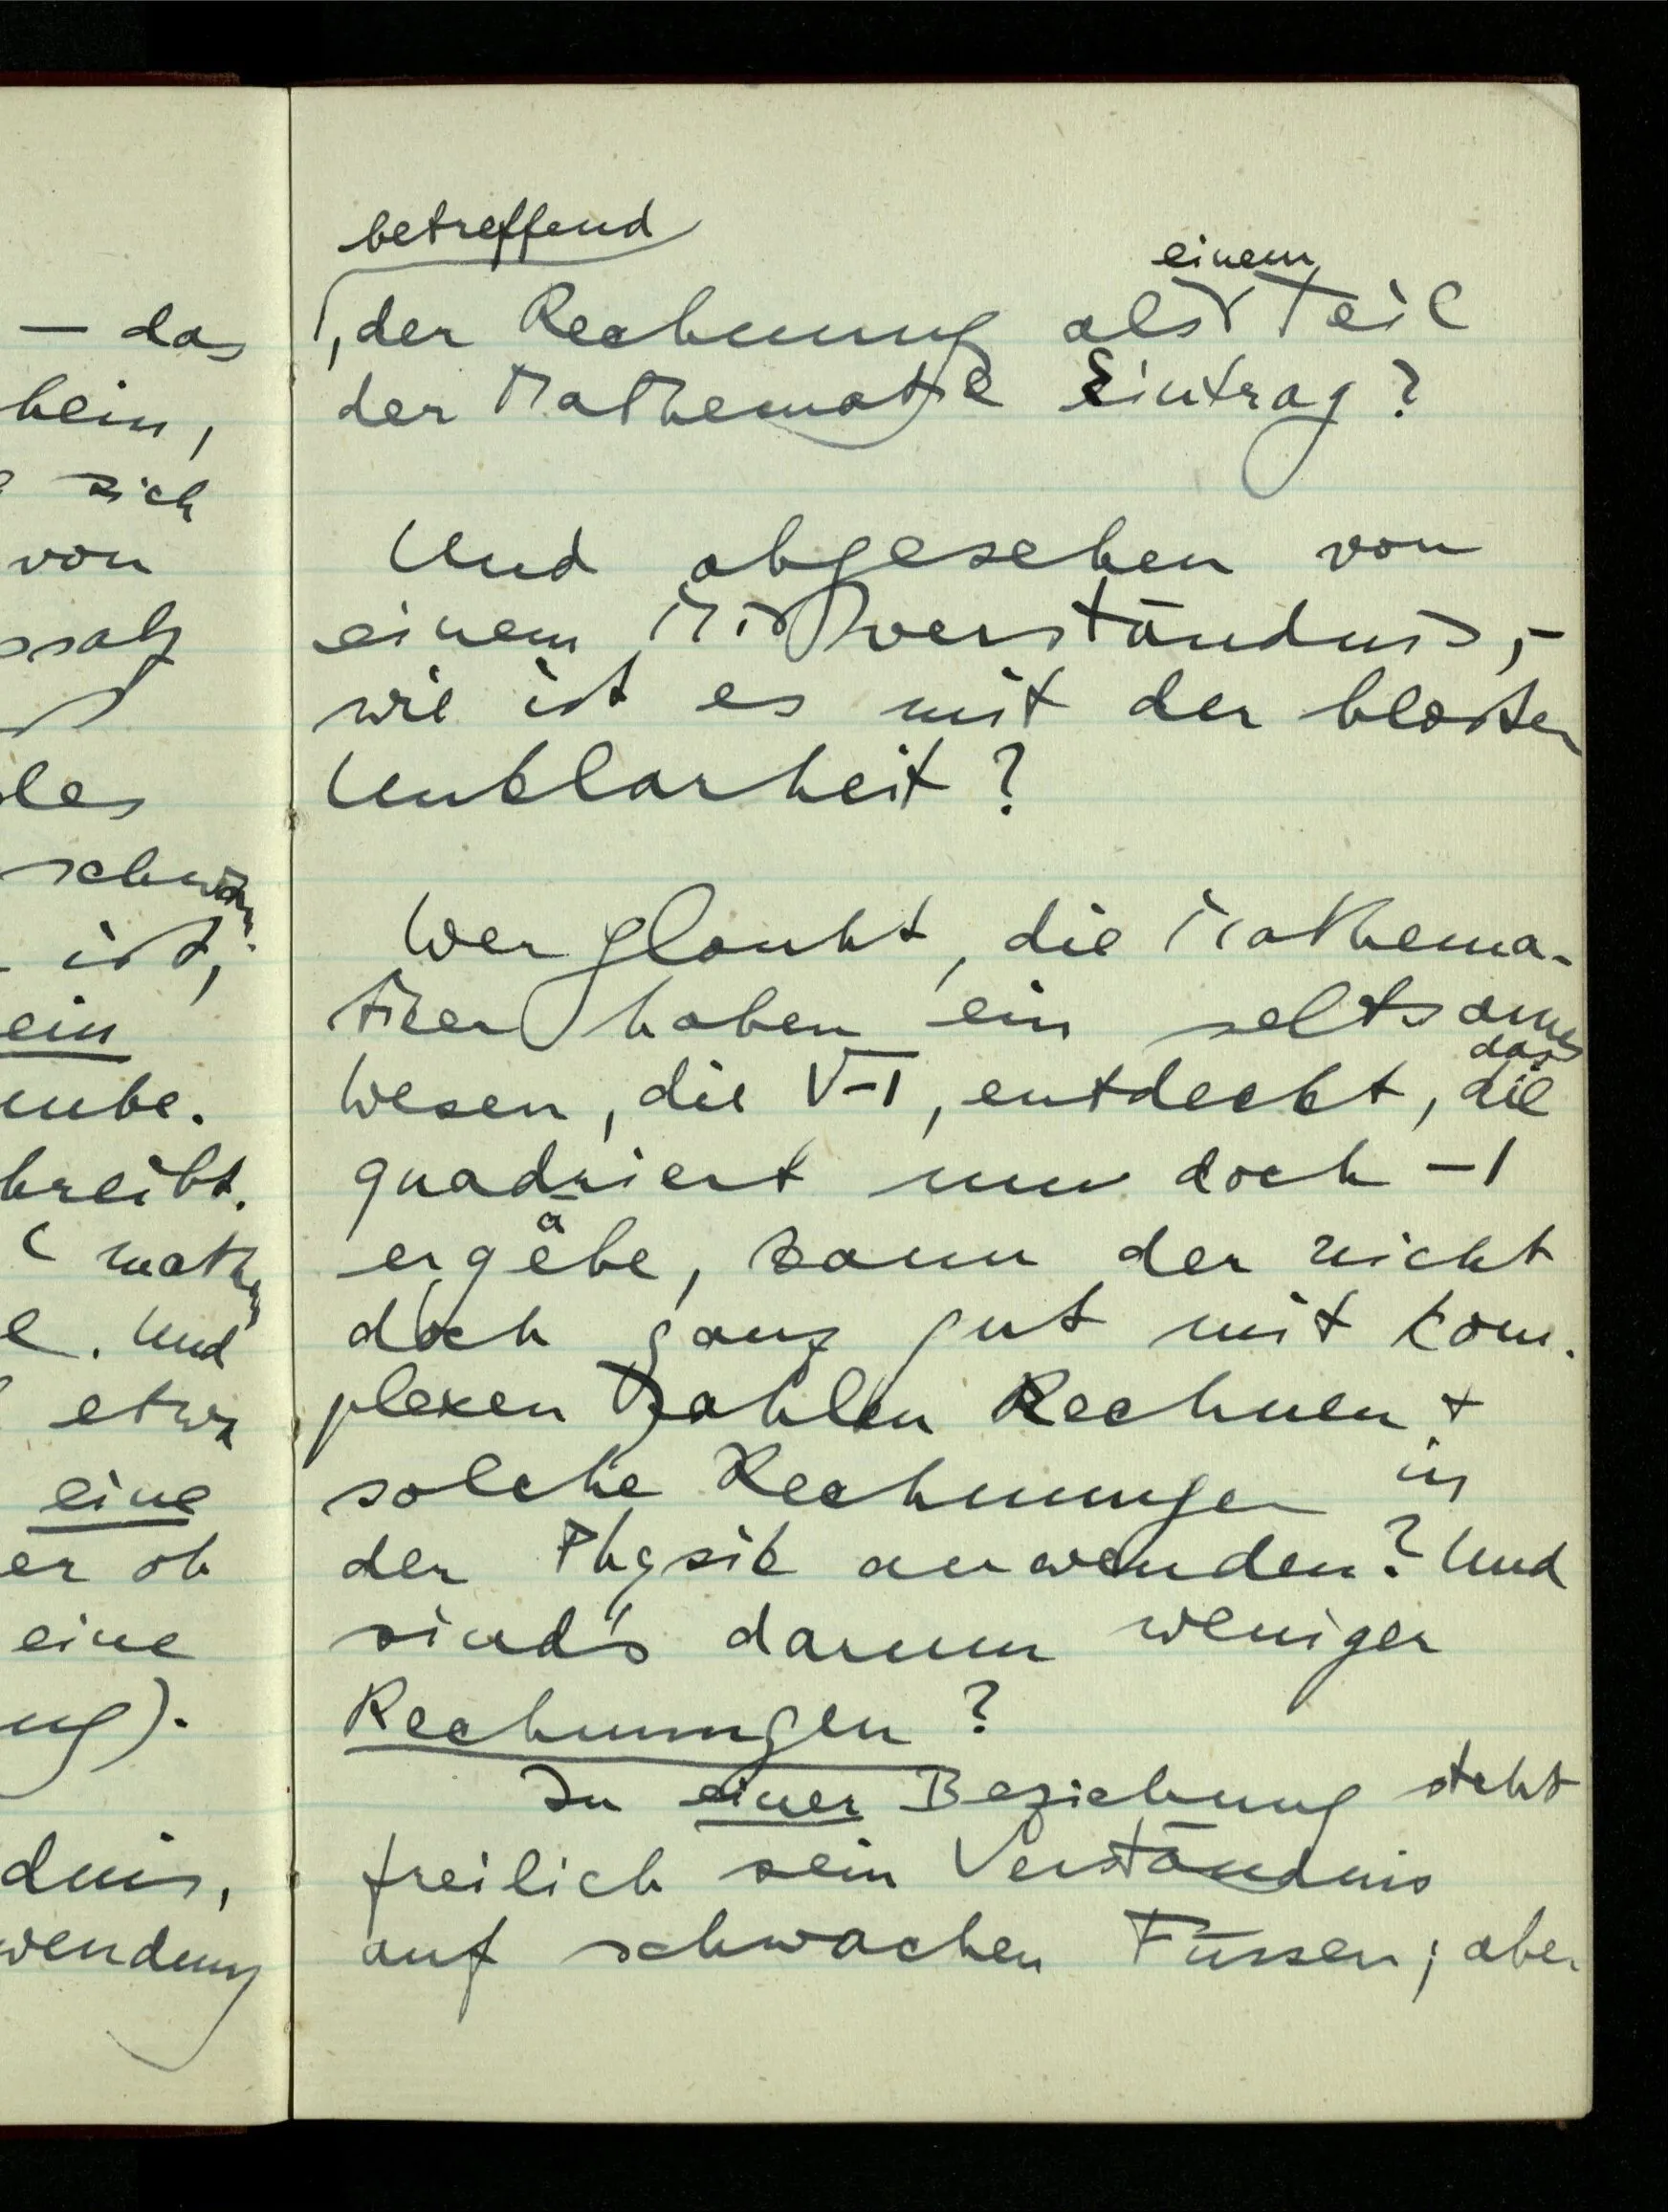 — das
hein,
sich
von
les
ist,
ein
ube.
hreibt.
e. Und
etwa
eine
er ob
eine
ug).
dnis,
wendung
betreffend
einem
, der Rechnung als Teil
der Mathematik Eintrag?
Und abgesehen von
einem Mißverständnis, –
wie ist es mit der bloßen
Unklarheit?
Wer glaubt, die Mathema-
tiker haben ein seltsames
das
Wesen, die √-1, entdeckt, die
quadriert nun doch –1
ergäbe, kann der nicht
doch ganz gut mit kom-
plexen Zahlen Rechnen +
solche Rechnungen in
der Physik anwenden? Und
sind's darum weniger
Rechnungen?
In einer Beziehung steht
freilich sein Verständnis
auf schwachen Füssen; aber